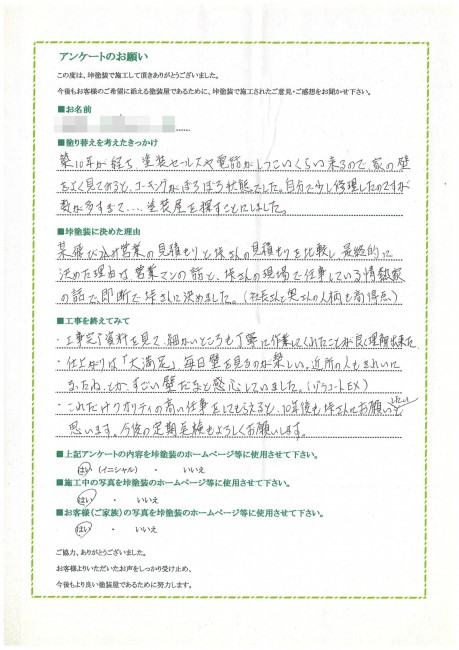 アンケートのお願い
この度は、坪塗装で施工して頂きありがとうございました。
今後もお客様のご希望に添える塗装屋であるために、坪塗装で施工されたご意見・ご感想をお聞かせ下さい。
■お名前
■塗り替えを考えたきっかけ
築10年が経ち、塗装セールスや電話がしつこいくらい来るので、家の壁
をよく見てみると、コーキングがぼろぼろ状態でした。自分で少し修理したのですが
数が多すぎて…、塗装屋を探すことにしました。
■坪塗装に決めた理由
某飛び込み営業の見積もりと坪さんの見積もりを比較し、最終的に
決めた理由は営業マンの話と、坪さんの現場で仕事している情熱家
の話で、即断で坪さんに決めました。(社長さんと奥さんの人柄も高得点)
■工事を終えてみて
・工事完了資料を見て、細かいところも丁寧に作業してくれたことが良く理解出来た
・仕上がりは「大満足」毎日壁を見るのが楽しい。近所の人もきれいに
なったね、とか、すごい壁だなと感心していました。(ジョリコートEX)
・これだけクオリティの高い仕事をしてもらえると、10年後も坪さんにお願いしたいと
思います。今後の定期点検もよろしくお願いします。
■上記アンケートの内容を坪塗装のホームページ等に使用させて下さい。
はい (イニシャル) ・ いいえ
■施工中の写真を坪塗装のホームページ等に使用させて下さい。
はい ・ いいえ
■お客様(ご家族)の写真を坪塗装のホームページ等に使用させて下さい。
はい ・ いいえ
ご協力、ありがとうございました。
お客様よりいただいたお声をしっかり受け止め、
今後もより良い塗装屋であるために努力します。